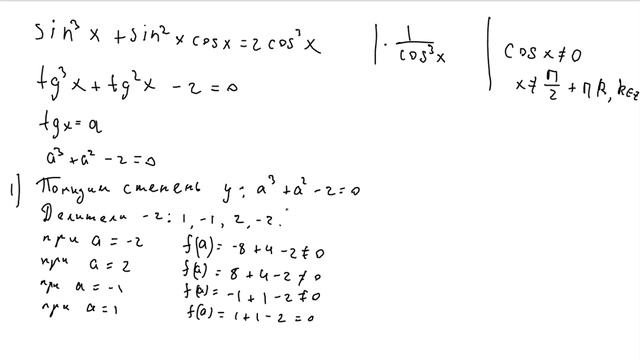 sin³x + sin²x cosx = 2cos³x | · 1/cos³x | cosx ≠ 0
x ≠ π/2 + πk, k∈z
tg³x + tg²x - 2 = 0
tgx = a
a³ + a² - 2 = 0
1) Понизим степень у: a³ + a² - 2 = 0
Делители -2: 1, -1, 2, -2.
при a = -2 f(a) = -8 + 4 - 2 ≠ 0
при a = 2 f(a) = 8 + 4 - 2 ≠ 0
при a = -1 f(a) = -1 + 1 - 2 ≠ 0
при a = 1 f(a) = 1 + 1 - 2 = 0